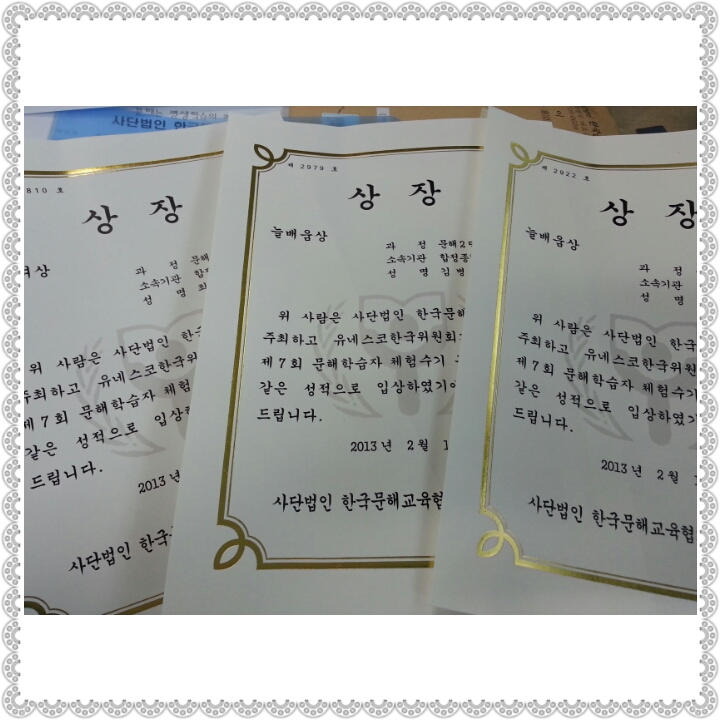 사단법인 한국
810 호
상 장
과 정 문해
소속기관 합정
성 명 최
위 사람은 사단법인 한국
주최하고 유네스코한국위원
제7회 문해학습자 체험
같은 성적으로 입상하
드립니다.
2013년
사단법인 한국
제 2979 호
상 장
늘배움상
과 정 문해2
소속기관 합정종
성 명 김병
위 사람은 사단법인 한국문해
주최하고 유네스코한국위원회
제7회 문해학습자 체험수기
같은 성적으로 입상하였기에
드립니다.
2013년 2월 1
사단법인 한국문해교육협
제 2922 호
상 장
늘배움상
과 정
소속기관
성 명
위 사람은 사단법인 한국
주최하고 유네스코한국위원
제7회 문해학습자 체험수기
같은 성적으로 입상하였기
드립니다.
2013년 2월
사단법인 한국문해교육